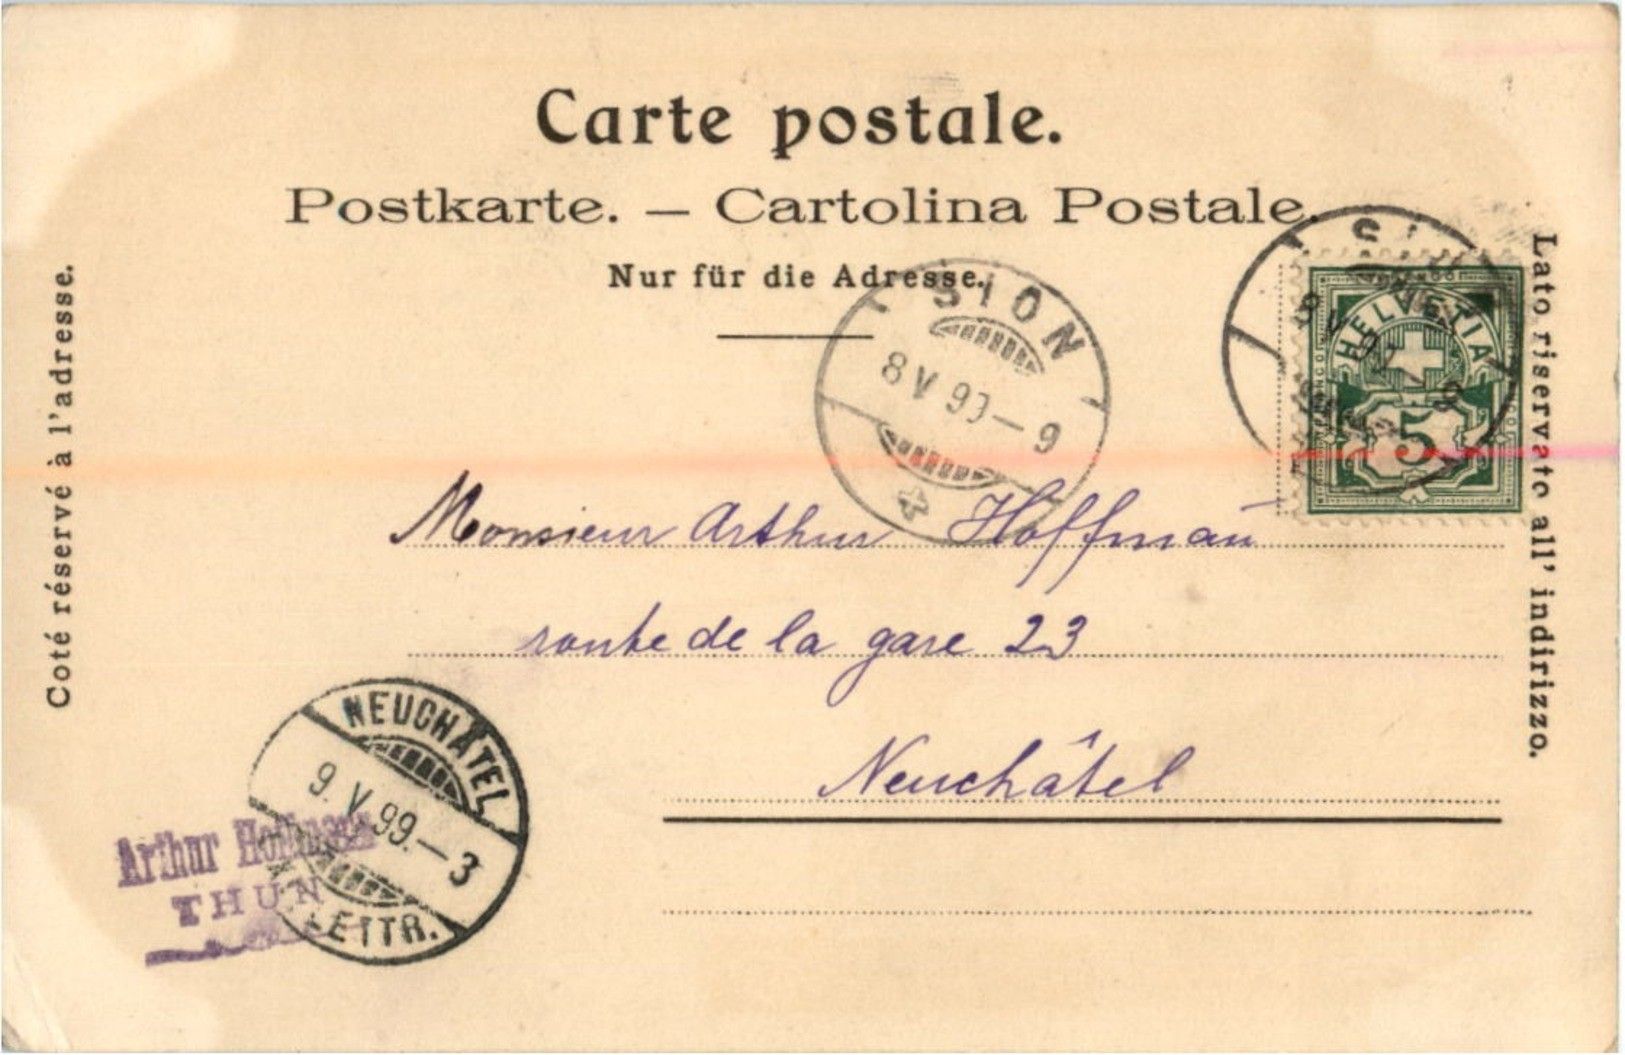 Carte postale.
Postkarte. — Cartolina Postale.
Nur für die Adresse.
Coté réservé à l'adresse.
Lato riservato all' indirizzo.
SION
8 V 99–9
HELVETIA
FRANCO
5
Monsieur Arthur Hoffman
route de la gare 23
Neuchâtel
NEUCHÂTEL
9. V. 99.–3
LETTR.
Arthur Hoffmann
THUN